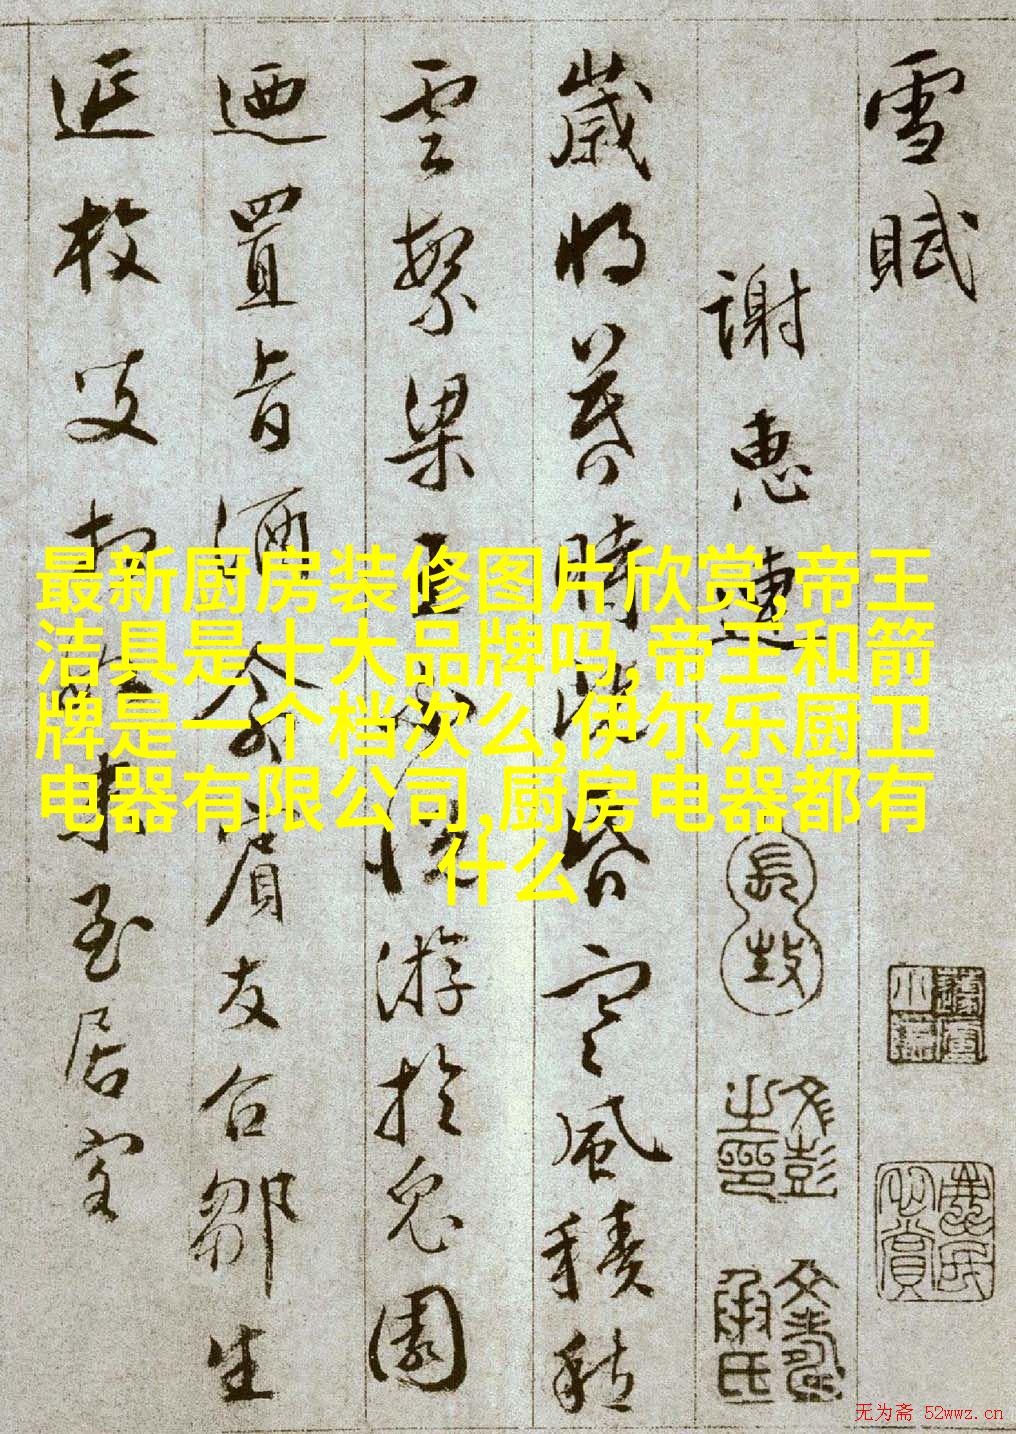 雪賦
謝惠連
歲將暮時既昏寒風積愁
雲繁梁王不悅游於兔園
迺置旨酒命賓友召鄒生
延枚叟相如末至居客
最新厨房装修图片欣赏,帝王
洁具是十大品牌吗,帝王和箭
牌是一个档次么,伊尔乐厨卫
电器有限公司,厨房电器都有
什么
文彭之印
文壽承氏
无为斋 52wwz.cn